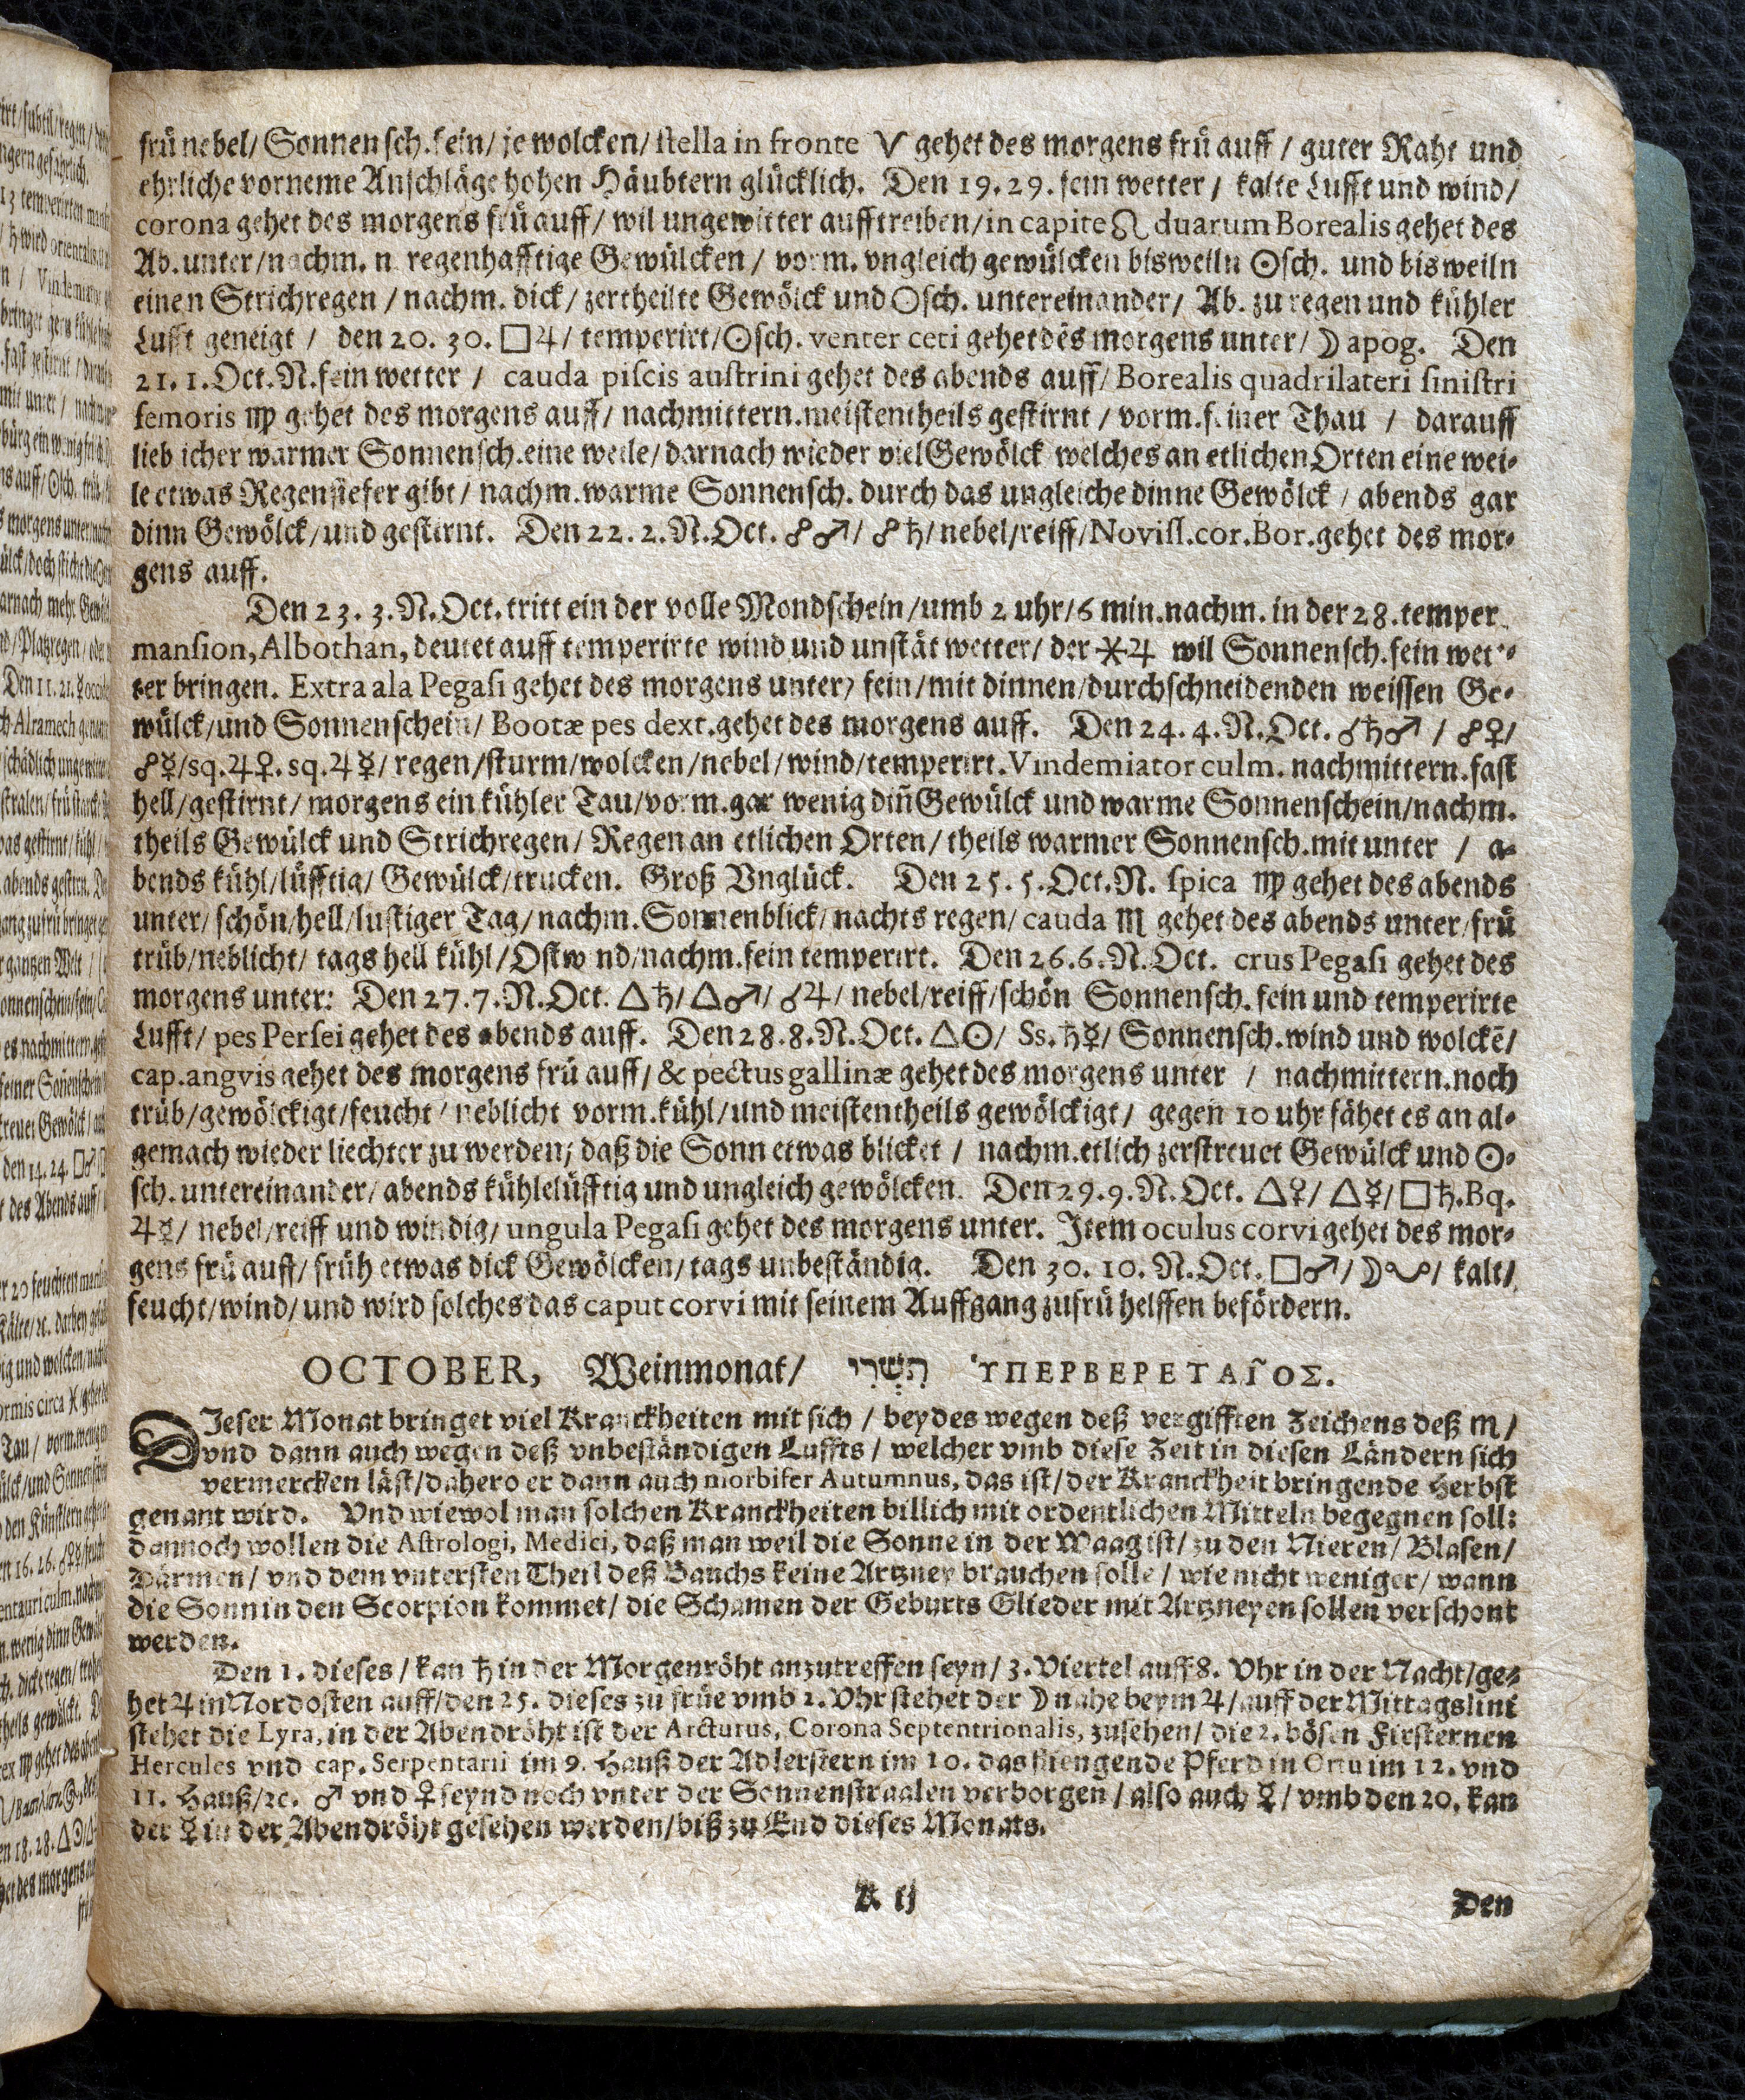 frü nebel/ Sonnensch. fein/ je wolcken/ stella in fronte ♈ gehet des morgens frü auff / guter Raht und
ehrliche vorneme Anschläge hohen Häubtern glücklich. Den 19. 29. fein wetter / kalte Lufft und wind/
corona gehet des morgens frü auff/ wil ungewitter aufftreiben/ in capite ♌ duarum Borealis gehet des
Ab. unter/ nachm. n regenhafftige Gewülcken / vorm. vngleich gewülcken bisweiln ☉sch. und bisweiln
einen Strichregen / nachm. dick/ zertheilte Gewölck und ☉sch. untereinander/ Ab. zu regen und kühler
Lufft geneigt / den 20. 30. □♃/ temperirt/ ☉sch. venter ceti gehet des morgens unter/ ☽ apog. Den
21. 1. Oct. N. fein wetter / cauda piscis austrini gehet des abends auff/ Borealis quadrilateri sinistri
femoris ♍ gehet des morgens auff/ nachmittern. meistentheils gestirnt / vorm. feiner Thau / darauff
lieblicher warmer Sonnensch. eine weile/ darnach wieder viel Gewölck welches an etlichen Orten eine wei-
le etwas Regenstefer gibt / nachm. warme Sonnensch. durch das ungleiche dinne Gewölck / abends gar
dinn Gewölck/ und gestirnt. Den 22. 2. N. Oct. ☍♂/ ☍♄/ nebel/ reiff/ Noviss. cor. Bor. gehet des mor-
gens auff.
Den 23. 3. N. Oct. tritt ein der volle Mondschein/ umb 2 uhr/ 6 min. nachm. in der 28. temper.
mansion, Albothan, deutet auff temperirte wind und unstät wetter/ der ⚹♃ wil Sonnensch. fein wet-
ter bringen. Extra ala Pegasi gehet des morgens unter/ fein/ mit dinnen/ durchschneidenden weissen Ge-
wülck/ und Sonnenschein/ Bootæ pes dext. gehet des morgens auff. Den 24. 4. N. Oct. ☌♄♂ / ☍♀/
☍☿/ sq. ♃♀. sq. ♃☿/ regen/ sturm/ wolcken/ nebel/ wind/ temperirt. Vindemiator culm. nachmittern. fast
hell/ gestirnt/ morgens ein kühler Tau/ vorm. gar wenig diñ Gewülck und warme Sonnenschein/ nachm.
theils Gewülck und Strichregen/ Regen an etlichen Orten/ theils warmer Sonnensch. mit unter / a-
bends kühl/ lüfftig/ Gewülck/ trucken. Groß Vnglück. Den 25. 5. Oct. N. spica ♍ gehet des abends
unter/ schön/ hell/ lustiger Tag/ nachm. Sonnenblick/ nachts regen/ cauda ♏ gehet des abends unter/ frü
trüb/ neblicht/ tags hell kühl/ Ostwind/ nachm. fein temperirt. Den 26. 6. N. Oct. crus Pegasi gehet des
morgens unter: Den 27. 7. N. Oct. △♄/ △♂/ ☌♃/ nebel/ reiff/ schön Sonnensch. fein und temperirte
Lufft/ pes Persei gehet des abends auff. Den 28. 8. N. Oct. △☉/ Ss. ♄☿/ Sonnensch. wind und wolckē/
cap. angvis gehet des morgens frü auff/ & pectus gallinæ gehet des morgens unter / nachmittern. noch
trüb/ gewölckigt/ feucht/ neblicht vorm. kühl/ und meistentheils gewölckigt/ gegen 10 uhr fähet es an al-
gemach wieder liechter zu werden/ daß die Sonn etwas blicket / nachm. etlich zerstreuet Gewülck und ☉-
sch. untereinander/ abends kühle lüfftig und ungleich gewölcken. Den 29. 9. N. Oct. △♀/ △☿/ □♄. Bq.
♃☿/ nebel/ reiff und windig/ ungula Pegasi gehet des morgens unter. Item oculus corvi gehet des mor-
gens frü auff/ früh etwas dick Gewölcken/ tags unbeständig. Den 30. 10. N. Oct. □♂/ ☽☋/ kalt/
feucht/ wind/ und wird solches das caput corvi mit seinem Auffgang zufrü helffen befördern.
OCTOBER, Weinmonat/ תִּשְׁרִי ὙΠΕΡΒΕΡΕΤΑῖΟΣ.
DIeser Monat bringet viel Kranckheiten mit sich / beydes wegen deß vergifften Zeichens deß ♏/
vnd dann auch wegen deß vnbeständigen Luffts / welcher vmb diese Zeit in diesen Ländern sich
vermercken läst/ dahero er dann auch morbifer Autumnus, das ist/ der Kranckheit bringende Herbst
genant wird. Vnd wiewol man solchen Kranckheiten billich mit ordentlichen Mitteln begegnen soll:
dannoch wollen die Astrologi, Medici, daß man weil die Sonne in der Waag ist/ zu den Nieren/ Blasen/
Därmen/ vnd dem vntersten Theil deß Bauchs keine Artzney brauchen solle / wie nicht weniger/ wann
die Sonn in den Scorpion kommet/ die Schamen der Geburts Glieder mit Artzneyen sollen verschont
werden.
Den 1. dieses / kan ♄ in der Morgenröht anzutreffen seyn/ 3. Viertel auff 8. Vhr in der Nacht/ ge-
het ♃ in Nordosten auff/ den 25. dieses zu früe vmb 1. Vhr stehet der ☽ nahe beym ♃/ auff der Mittagslini
stehet die Lyra, in der Abendröht ist der Arcturus, Corona Septentrionalis, zusehen/ die 2. bösen Firsternen
Hercules vnd cap. Serpentarii im 9. Hauß der Adlerstern im 10. das fliengende Pferd in Ortu im 12. vnd
11. Hauß/ ꝛc. ♂ vnd ♀ seynd noch vnter der Sonnenstraalen verborgen / also auch ☿/ vmb den 20. kan
der ☿ in der Abendröht gesehen werden/ biß zu End dieses Monats.
K ij
Den